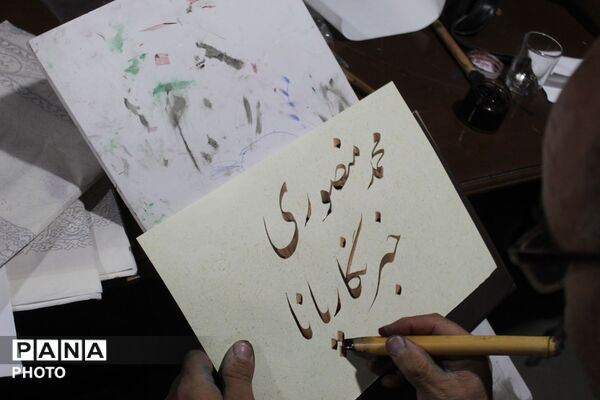 محمد منصوری
خبرنگار پانا
PANA
PHOTO